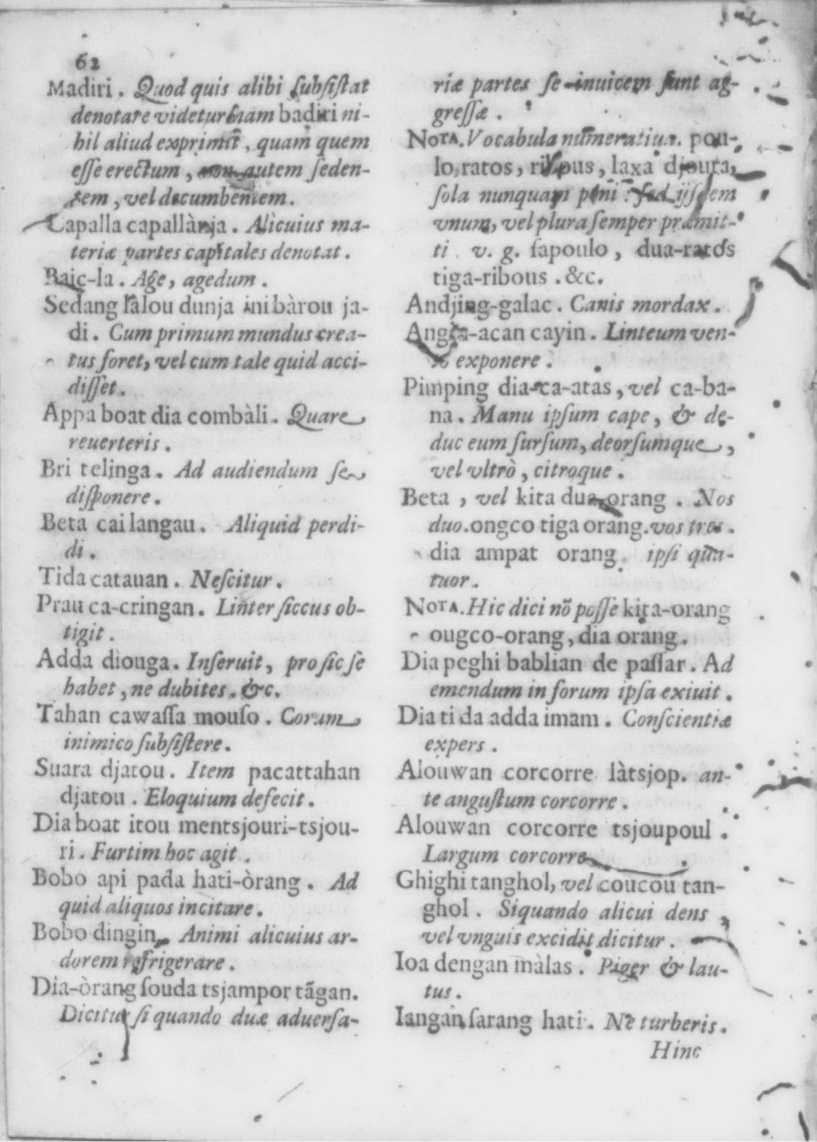 62
Madiri. Quod quis alibi ſubſiſtat
denotare videtur nam badiri ni-
hil aliud exprimit, quam quem
eſſe erectum, non autem ſeden-
tem, vel decumbentem.
Capalla capallànja. Alicuius ma-
teriæ partes capitales denotat.
Baic-la. Age, agedum.
Sedang ſalou dunja ini bàrou ja-
di. Cum primum mundus crea-
tus foret, vel cum tale quid acci-
diſſet.
Appa boat dia combàli. Quare
reuerteris.
Bri telinga. Ad audiendum ſe
diſponere.
Beta cailangau. Aliquid perdi-
di.
Tida catauan. Neſcitur.
Prau ca-cringan. Linter ſiccus ob-
tigit.
Adda diouga. Inſeruit, pro ſic ſe
habet, ne dubites. &c.
Tahan cawaſſa mouſo. Coram
inimico ſubſiſtere.
Suara djatou. Item pacattahan
djatou. Eloquium defecit.
Dia boat itou mentsjouri-tsjou-
ri. Furtim hoc agit.
Bobo api pada hati-òrang. Ad
quid aliquos incitare.
Bobo dingin. Animi alicuius ar-
dorem refrigerare.
Dia-òrang ſouda tsjampor tãgan.
Dicitur ſi quando duæ aduerſa-
riæ partes ſe inuicem ſunt ag-
greſſæ.
NOTA. Vocabula numeratiua. pou-
lo, ratos, ribous, laxa djouta,
ſola nunquam poni: ſed ijſdem
vnum, vel plura ſemper præmit-
ti v. g. ſapoulo, dua-ratos
tiga-ribous. &c.
Andjing-galac. Canis mordax.
Angca-acan cayin. Linteum ven-
exponere.
Pimping dia-ca-atas, vel ca-ba-
na. Manu ipſum cape, & de-
duc eum ſurſum, deorſumque,
vel vltrò, citroque.
Beta, vel kita dua-orang. Nos
duo. ongco tiga orang. vos tres.
dia ampat orang. ipſi qua-
tuor.
NOTA. Hic dici nõ poſſe kita-orang
ougco-orang, dia orang.
Dia peghi bablian de paſſar. Ad
emendum in forum ipſa exiuit.
Dia ti da adda imam. Conſcientiæ
expers.
Alouwan corcorre làtsjop. an-
te anguſtum corcorre.
Alouwan corcorre tsjoupoul.
Largum corcorre.
Ghighi tanghol, vel coucou tan-
ghol. Siquando alicui dens,
vel vnguis excidit dicitur.
Ioa dengan màlas. Piger & lau-
tus.
Iangan ſarang hati. Ne turberis.
Hinc